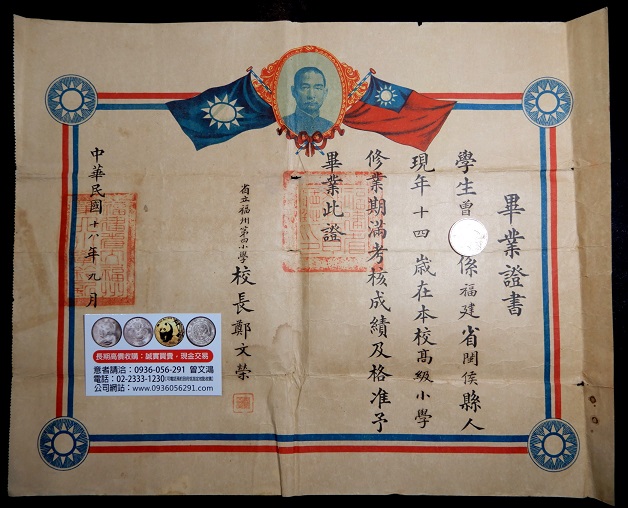 畢業證書
學生曾 係福建省閩侯縣人
現年十四歲在本校高級小學
修業期滿考核成績及格准予
畢業此證
省立福州第四小學校長鄭文榮
中華民國十八年九月
長期高價收購：誠實買賣，現金交易
意者請洽：0936-056-291 曾文鴻
電話：02-2333-1230
公司網站：www.0936056291.com